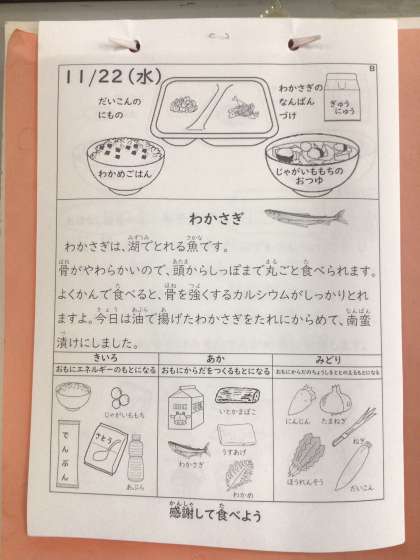 11/22(水)
B
だいこんの
にもの
わかさぎの
なんばん
づけ
ぎゅう
にゅう
わかめごはん
じゃがいももちの
おつゆ
わかさぎ
わかさぎは、湖でとれる魚です。
骨がやわらかいので、頭からしっぽまで丸ごと食べられます。
よくかんで食べると、骨を強くするカルシウムがしっかりとれ
ますよ。今日は油で揚げたわかさぎをたれにからめて、南蛮
漬けにしました。
きいろ
あか
みどり
おもにエネルギーのもとになる
おもにからだをつくるもとになる
おもにからだのちょうしをととのえるもとになる
じゃがいももち
でんぷん
さとう
あぶら
いとかまぼこ
うすあげ
わかさぎ
わかめ
にんじん
たまねぎ
ねぎ
ほうれんそう
だいこん
感謝して食べよう